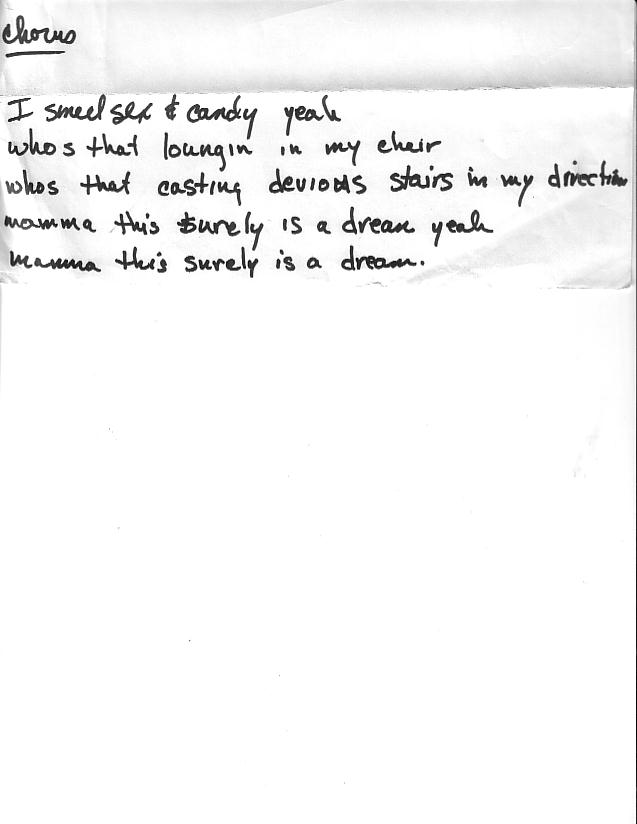 chorus
I smell sex & candy yeah
whos that loungin in my chair
whos that casting devious stairs in my direction
mamma this surely is a dream yeah
mamma this surely is a dream.